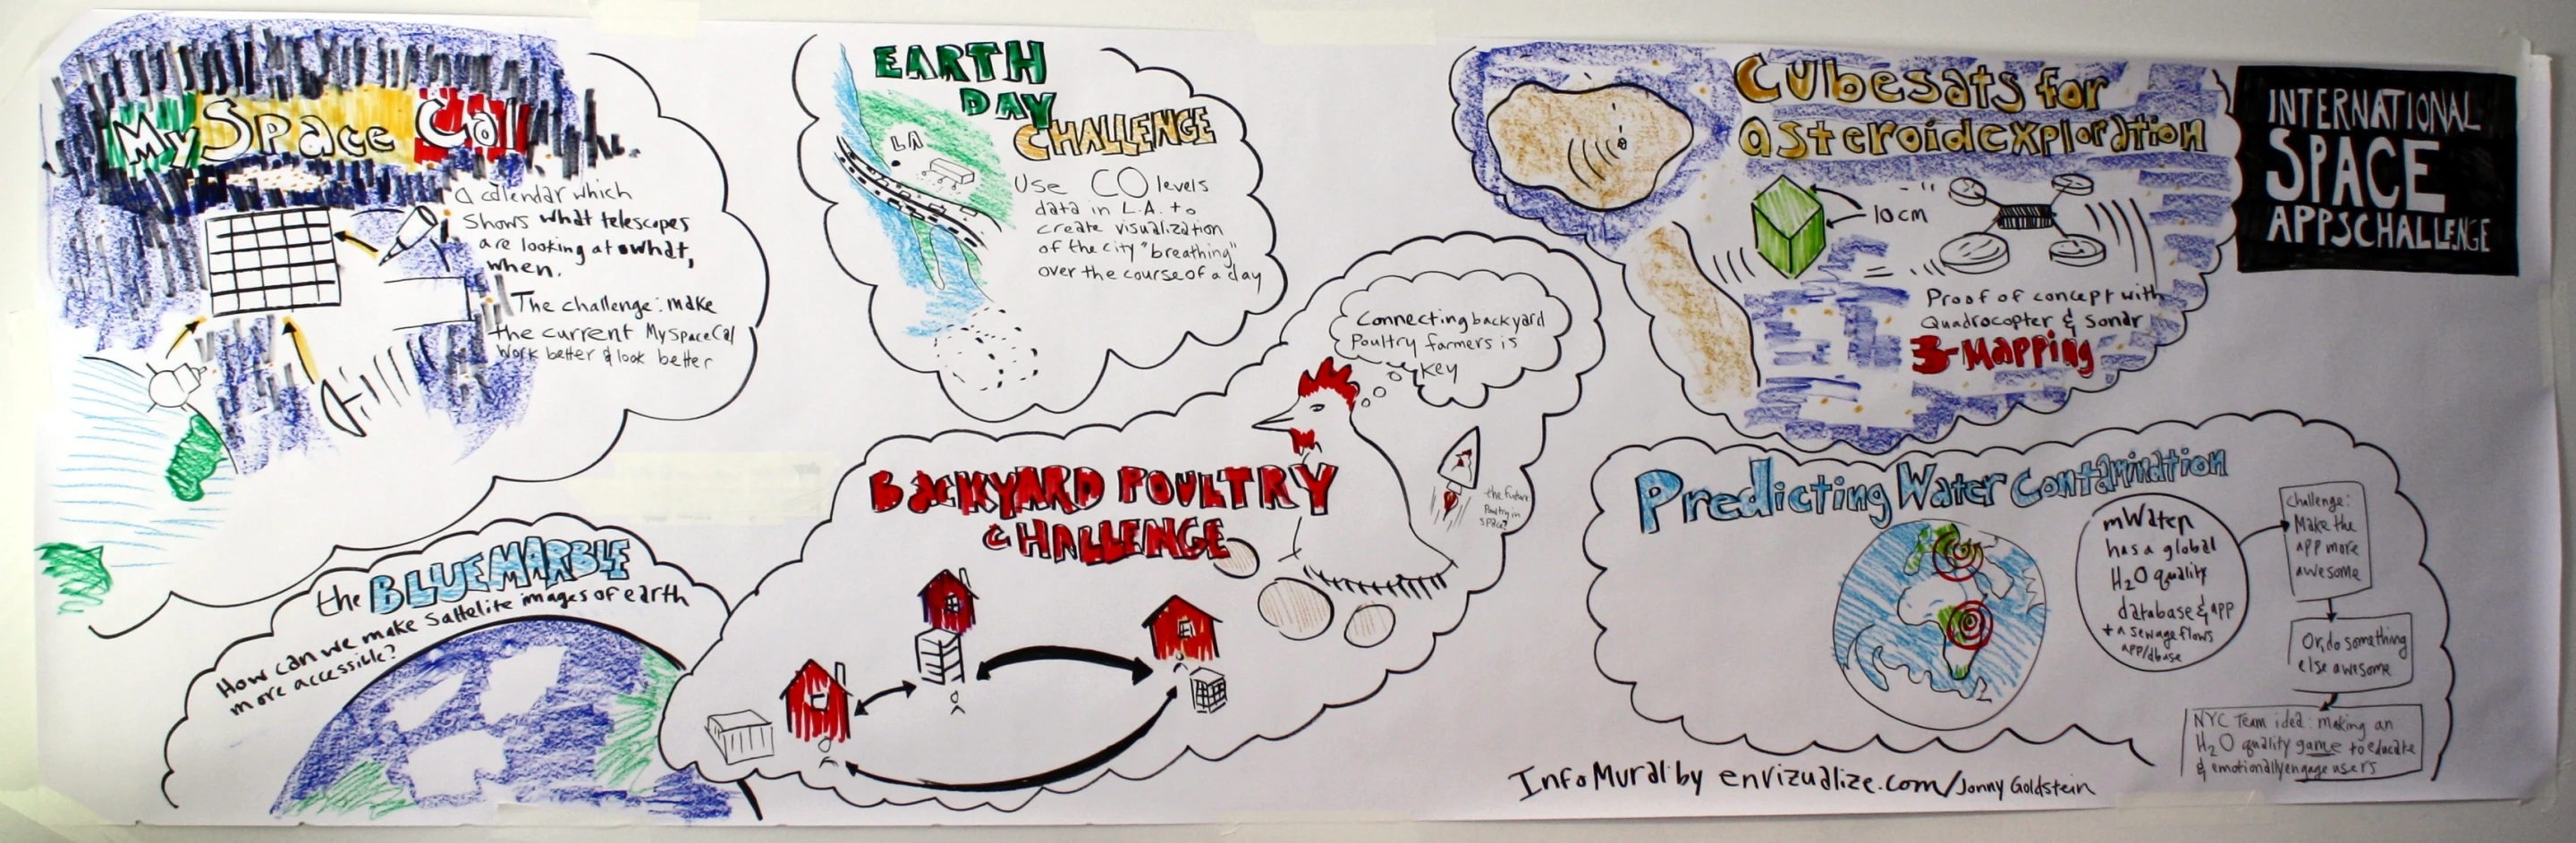 My Space Cal
A calendar which
shows what telescopes
are looking at what,
when.
The challenge: make
the current MySpaceCal
work better & look better
EARTH
DAY
CHALLENGE
LA
Use CO levels
data in L.A. to
create visualization
of the city "breathing"
over the course of a day
Cubesats for
asteroid exploration
10cm
Proof of concept with
Quadrocopter & sonar
3-Mapping
INTERNATIONAL
SPACE
APPSCHALLENGE
the BLUE MARBLE
How can we make Sattelite images of earth
more accessible?
BACKYARD POULTRY
CHALLENGE
Connecting backyard
Poultry farmers is
key
the future
Poultry in
SPACE?
Predicting Water Contamination
mWater
has a global
H2O quality
database & app
+ a sewage flows
app/dbase
Challenge:
Make the
app more
awesome
Or, do something
else awesome
NYC Team idea: making an
H2O quality game to educate
& emotionally engage users
InfoMural by envizualize.com/Jonny Goldstein